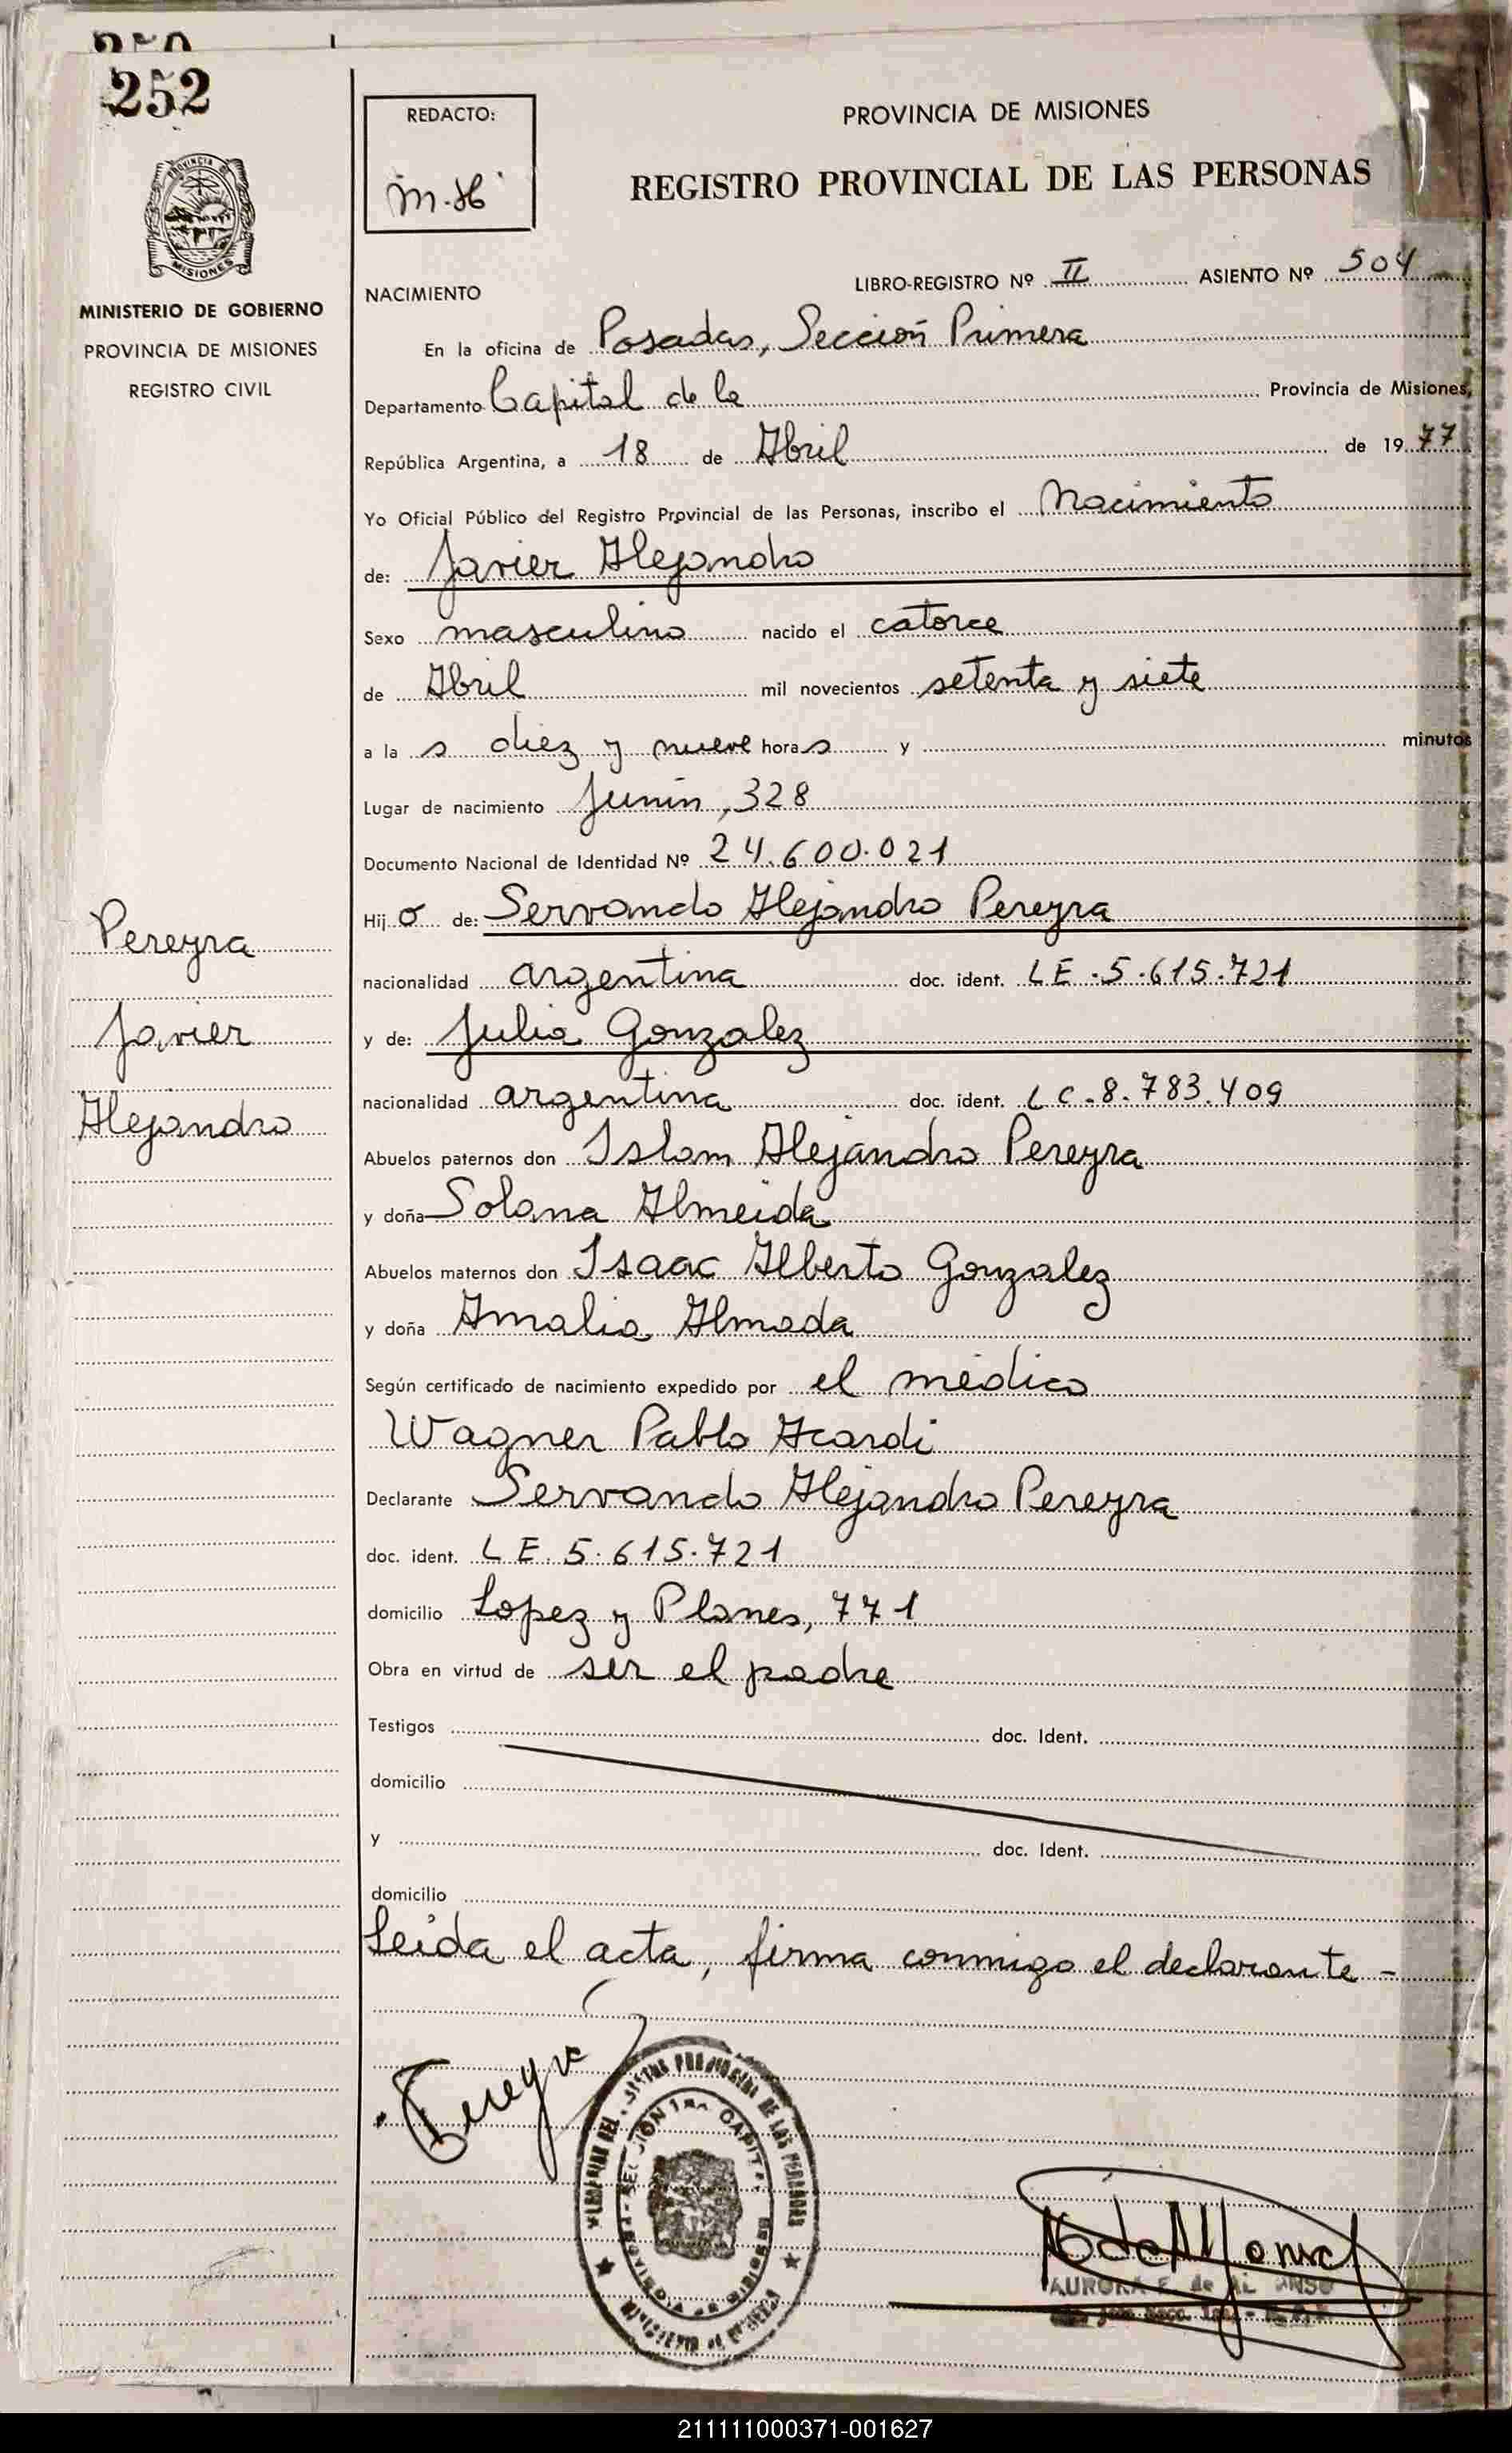 252
REDACTO:
PROVINCIA DE MISIONES
REGISTRO PROVINCIAL DE LAS PERSONAS
MISIONES
MINISTERIO DE GOBIERNO
PROVINCIA DE MISIONES
REGISTRO CIVIL
NACIMIENTO
LIBRO-REGISTRO Nº II ASIENTO Nº 504
En la oficina de Posadas, Sección Primera
Departamento Capital de la Provincia de Misiones,
República Argentina, a 18 de Abril de 1977
Yo Oficial Público del Registro Provincial de las Personas, inscribo el Nacimiento
de: Javier Alejandro
Sexo masculino nacido el catorce
de Abril mil novecientos setenta y siete
a la s diez y nueve hora s y minutos
Lugar de nacimiento Junin, 328
Documento Nacional de Identidad Nº 24.600.021
Hij o de: Servando Alejandro Pereyra
nacionalidad argentina doc. ident. LE.5.615.721
y de: Julia Gonzalez
nacionalidad argentina doc. ident. LC.8.783.409
Abuelos paternos don Islam Alejandro Pereyra
y doña Solana Almeida
Abuelos maternos don Isaac Alberto Gonzalez
y doña Amalia Almada
Según certificado de nacimiento expedido por el médico
Wagner Pablo Acardi
Declarante Servando Alejandro Pereyra
doc. ident. LE. 5.615.721
domicilio Lopez y Planes, 771
Obra en virtud de ser el padre
Testigos doc. Ident.
domicilio
y doc. Ident.
domicilio
Leida el acta, firma conmigo el declarante -
Pereyra
Javier
Alejandro
Pereyra
AURORA F. de ALONSO
211111000371-001627